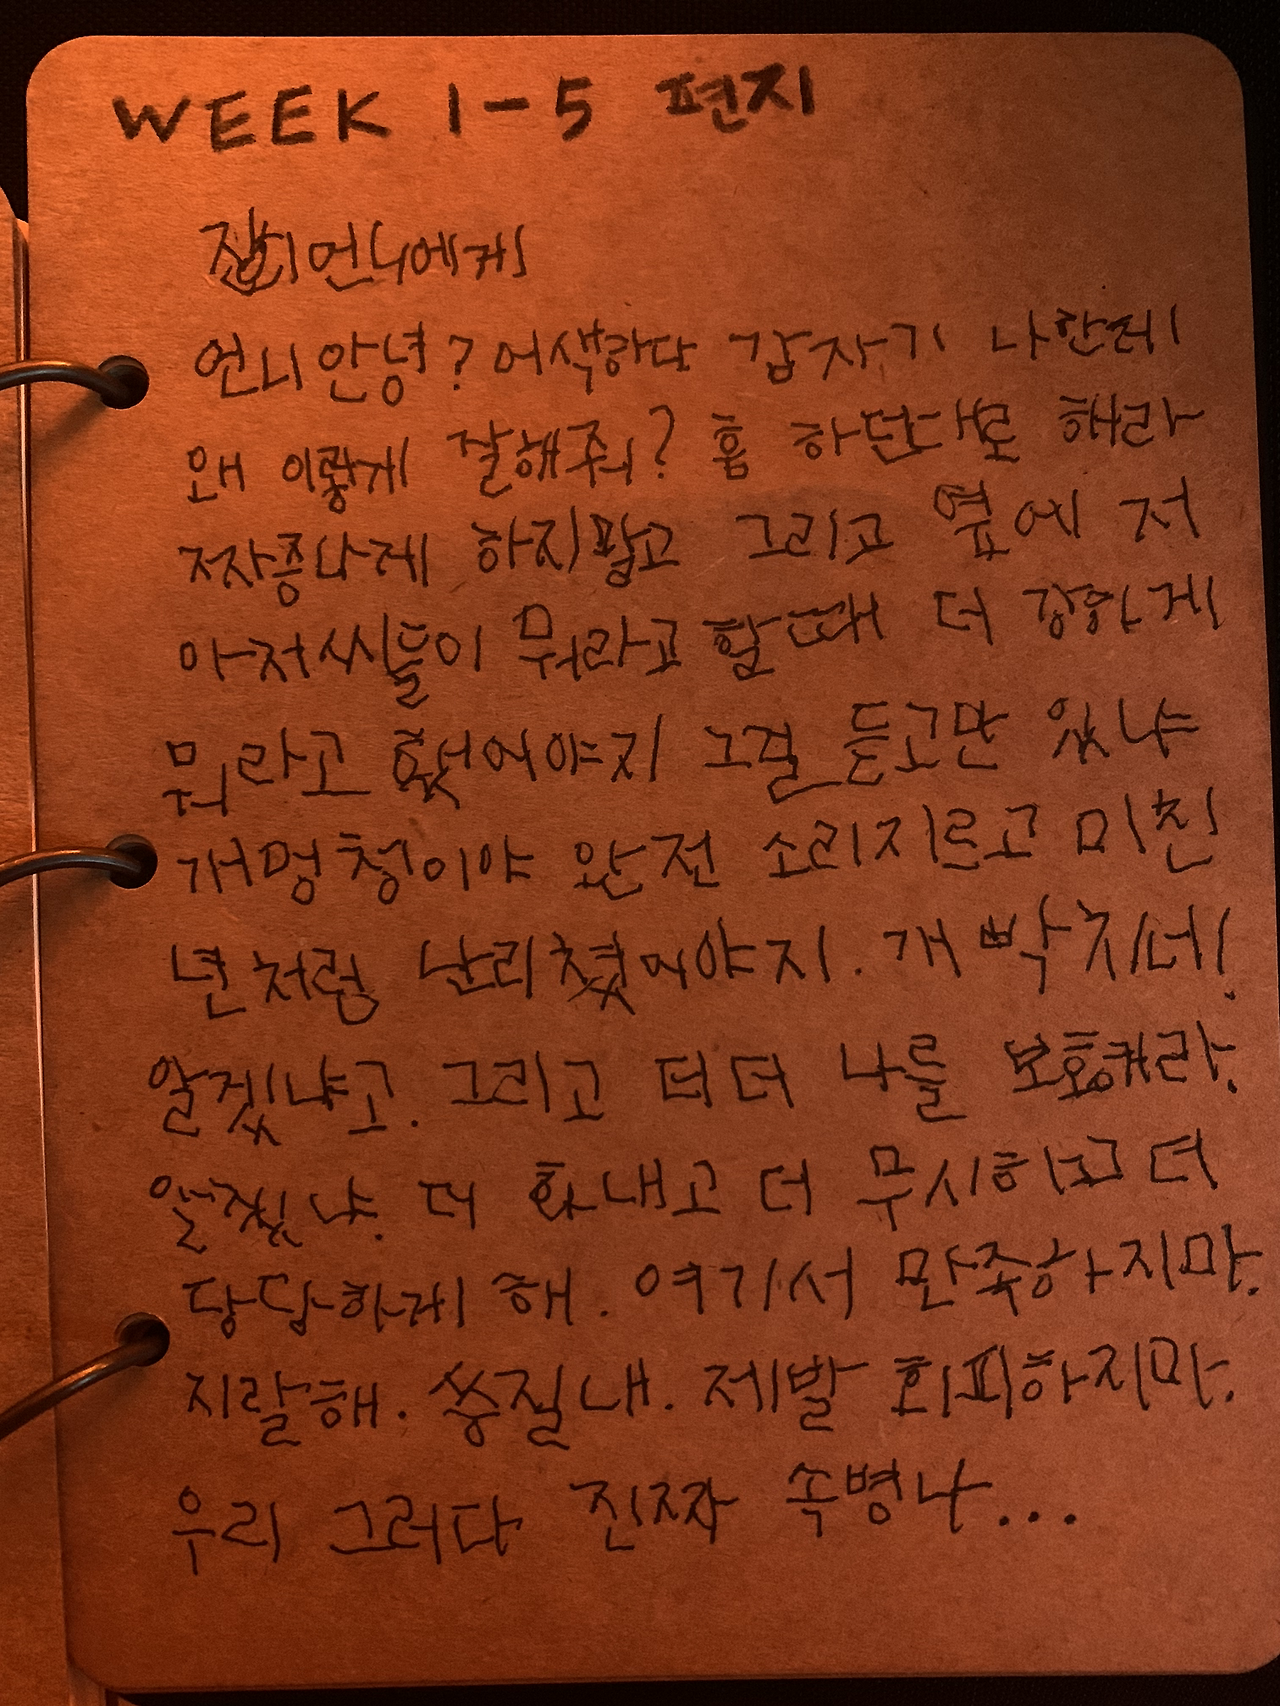 WEEK 1-5 편지
언니에게
언니 안녕? 어색하다 갑자기 나한테
왜 이렇게 잘해줘? 흠 하던대로 해라
짜증나게 하지말고 그리고 옆에 저
아저씨들이 뭐라고 할때 더 강하게
뭐라고 했어야지 그걸 듣고만 있냐
개멍청이야 완전 소리지르고 미친
년처럼 난리쳤어야지. 개빡치네!
알겠냐고. 그리고 더 더 나를 보호해라.
알겠냐. 더 화내고 더 무시하고 더
당당하게 해. 여기서 만족하지마.
지랄해. 승질내. 제발 회피하지마.
우리 그러다 진짜 속병나...